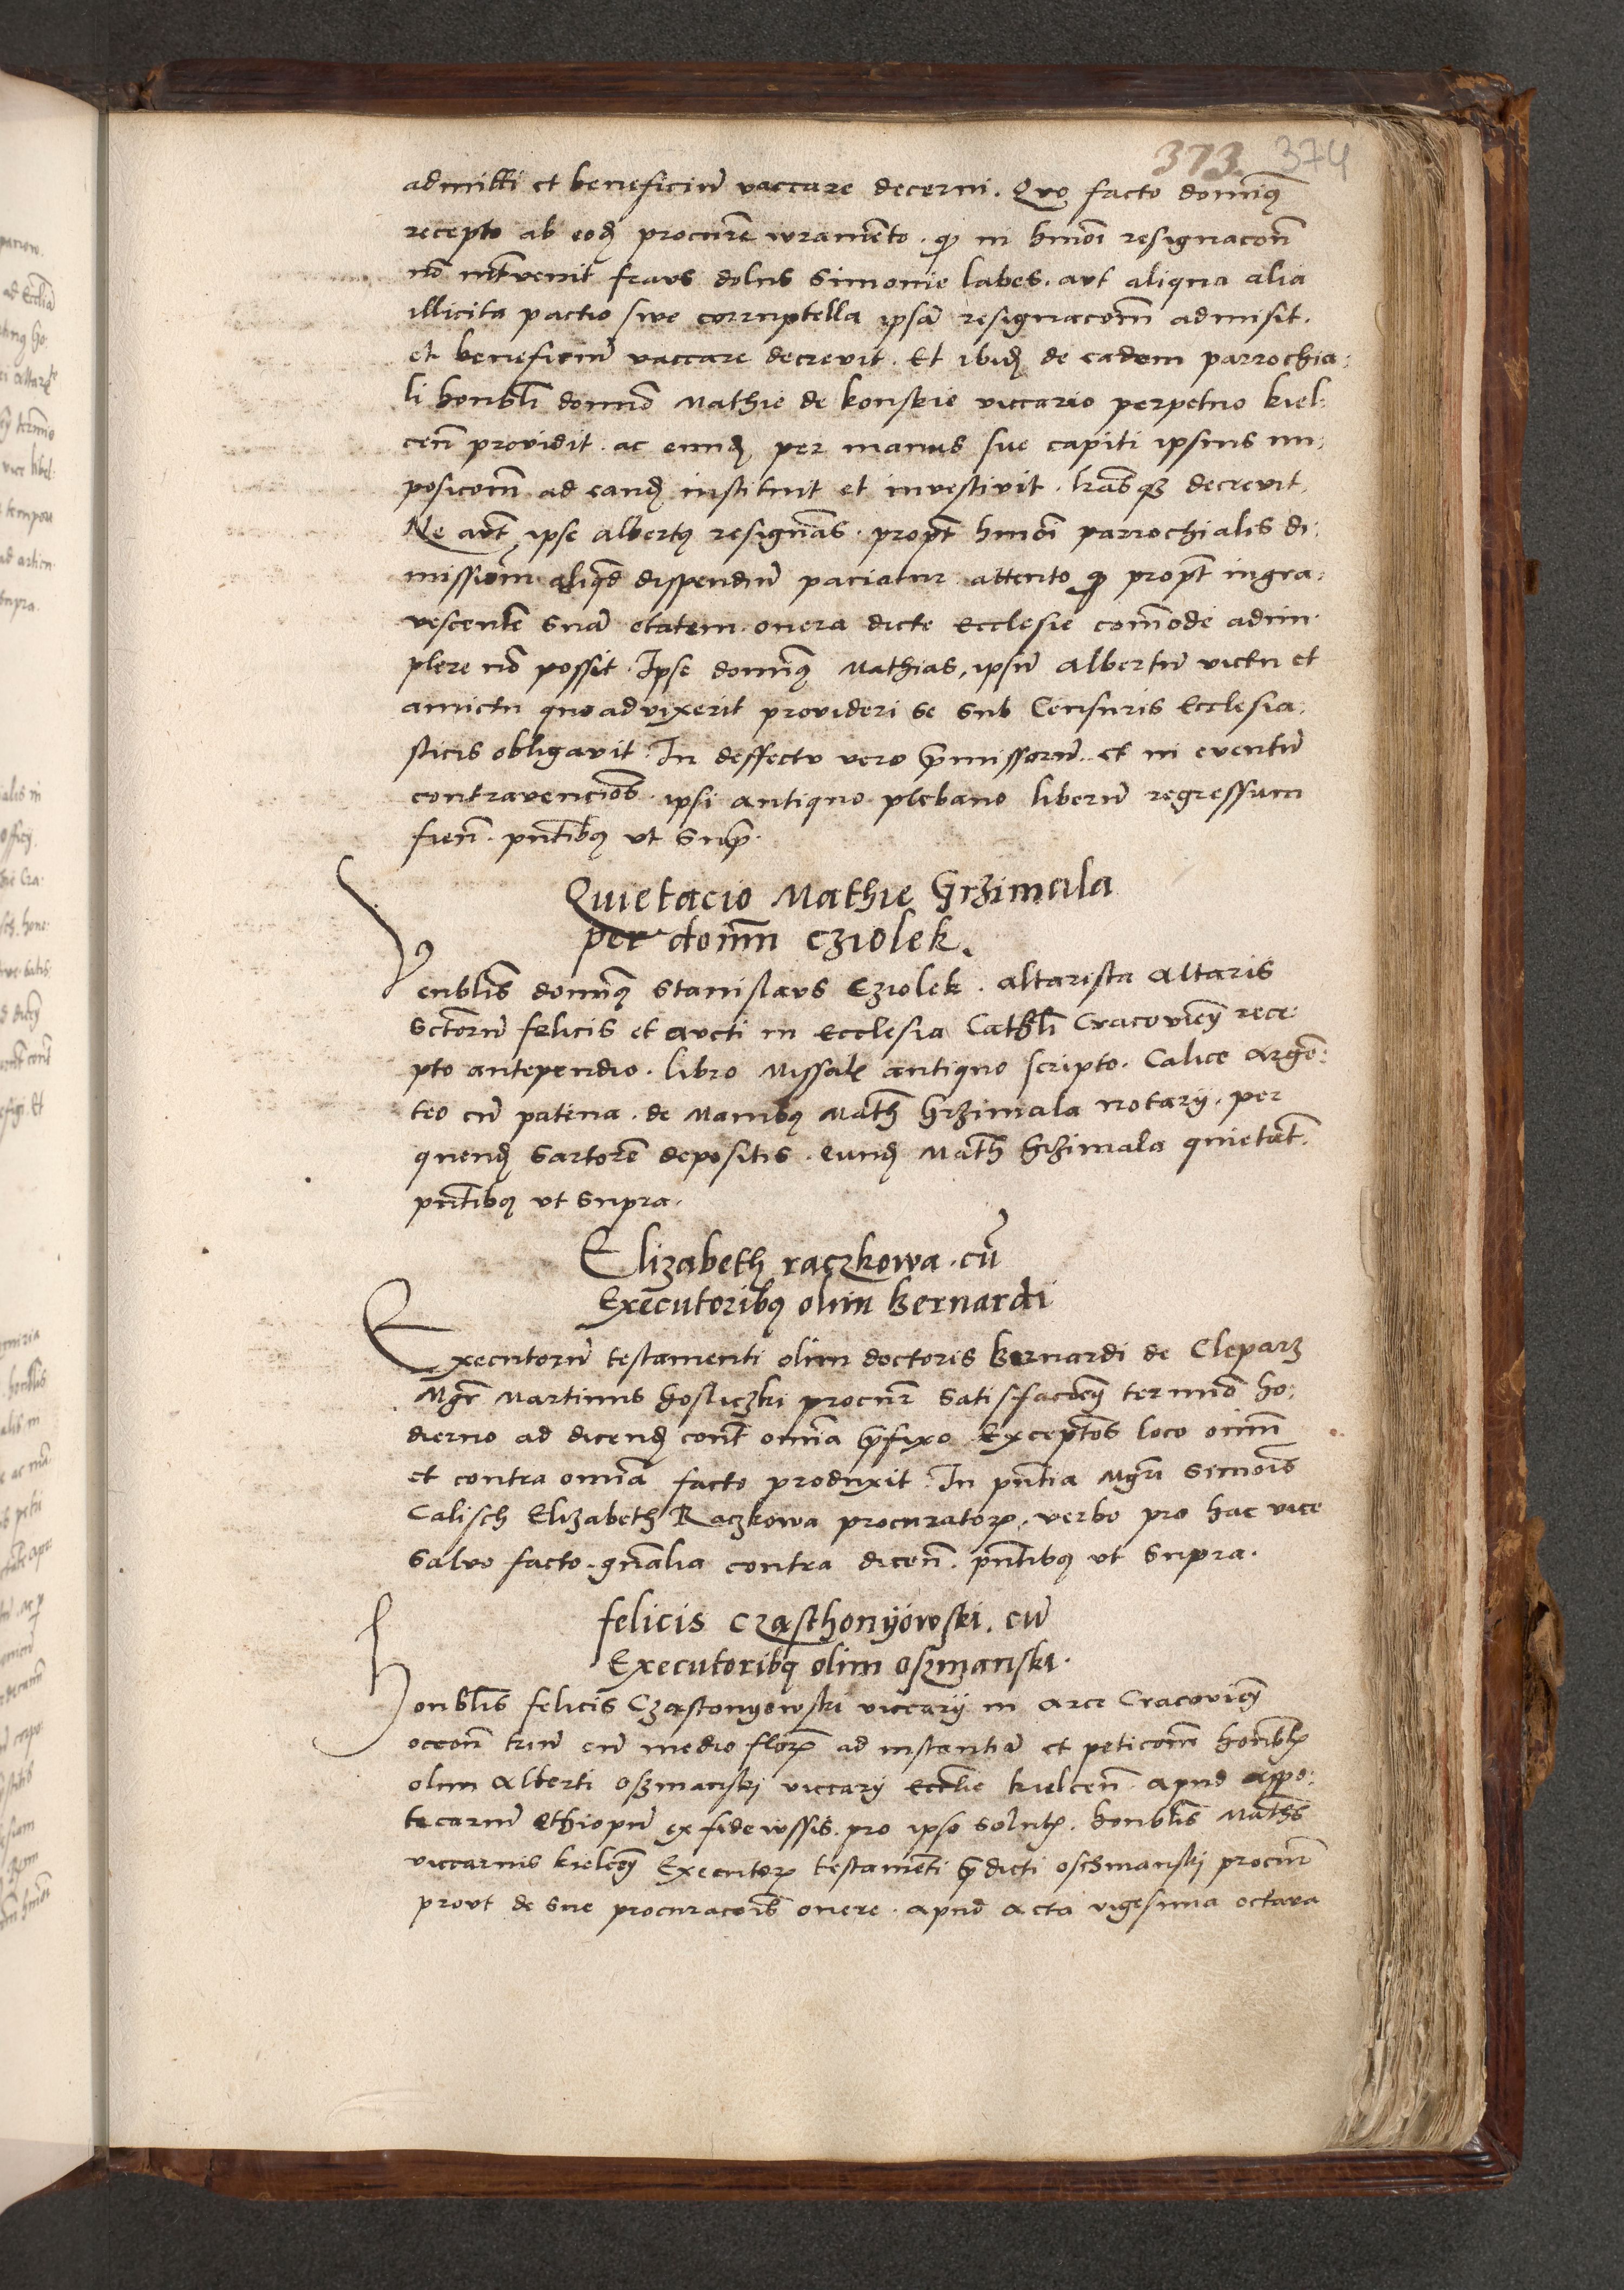 373. 374
admitti et beneficiū vaccare decerni. Quo facto domīqꝫ
recepto ab eodꝫ procur̄e iuramēto. qꝫ in hmōi resignacōn̄
nō int̄venit fraus dolus Simonie labes. aut aliqua alia
illicita pactio sive corruptella ipsā resignacōm̄ admisit.
et beneficiū vaccare decrevit. Et ibidꝫ de eadem parrochia:
li honbl̄i domīo Mathie de konskie viccario perpetuo kiel:
cen̄ providit. ac eundꝫ per manus sue capiti ipsius im:
posicōm̄ ad eandꝫ instituit et investivit. l̄rasqꝫ decrevit.
Ne aut̄ ipse Albertꝰ resignās. propt̄ hmōi parrochialis di:
missiōm̄ aliqd̄ dispendiū paciatur attento qꝫ propt̄ ingra:
vescentē suā etatem onera dicte Ecclesie com̄ode adim:
plere nō possit. Ipse domīqꝫ Mathias, ipsū Albertū victu et
amictu quoadvixerit provideri se sub Censuris Ecclesia:
sticis obligavit. In deffectu vero p̄missorū. et in eventū
contravencio͞is. ipsi antiquo plebano liberū regressum
fien̄. pn̄tibꝰ ut sup̄.
Quietacio Mathie Grzimala
per domn̄ Cziolek.
Venblīs domīqꝫ Stanislaus Cziolek. altarista Altaris
Sctōrū felicis et aucti in Ecclesia Cathl̄i Cracovien̄ rece:
pto antependio. libro Missali antiquo scripto. Calice argē:
teo cū patena. de Manibꝰ Math̄ Grzimala notarij. per
quendꝫ Sartorē depositis. eundꝫ Math̄ Grzimala quietat̄.
pn̄tibꝰ ut Supra.
Elizabeth raczkowa. cū
Executoribꝰ olim Bernardi
Executorū testamenti olim doctoris Bernardi de Cleparz
Mgr̄ Martinus kosliczki procur̄ Satisfaciēn̄ termīo ho:
dierno ad dicendꝫ cont̄ om̄ia p̄fixo Exceptōs loco oīm̄
et contra om̄ia facto produxit. In pn̄tia Mgr̄i Simo͞is
Calisch Elizabeth Raczkowa procuratorꝫ. verbo pro hac vice
Salvo facto. gn̄alia contra dicen̄. pn̄tibꝰ ut Supra.
felicis Czasthonyowski. cū
Executoribꝰ olim oszmanski.
Honblīs felicis Czastonyowski viccarij in arce Cracovien̄
occōn̄ triū cū medio florꝫ ad instantiā et peticōm̄ honblꝫ
olim Alberti Oszmanski viccarij Ecclīe kielcen̄ apud appo:
tecariū Ethiopū ex fideiussis. pro ipso Solutꝫ. honblīs Math̄s
viccarius kielcen̄ Executorꝫ testamēti p̄dicti oschmanski procur̄
prout de sue procuracōis onere. apud acta vigesima octava